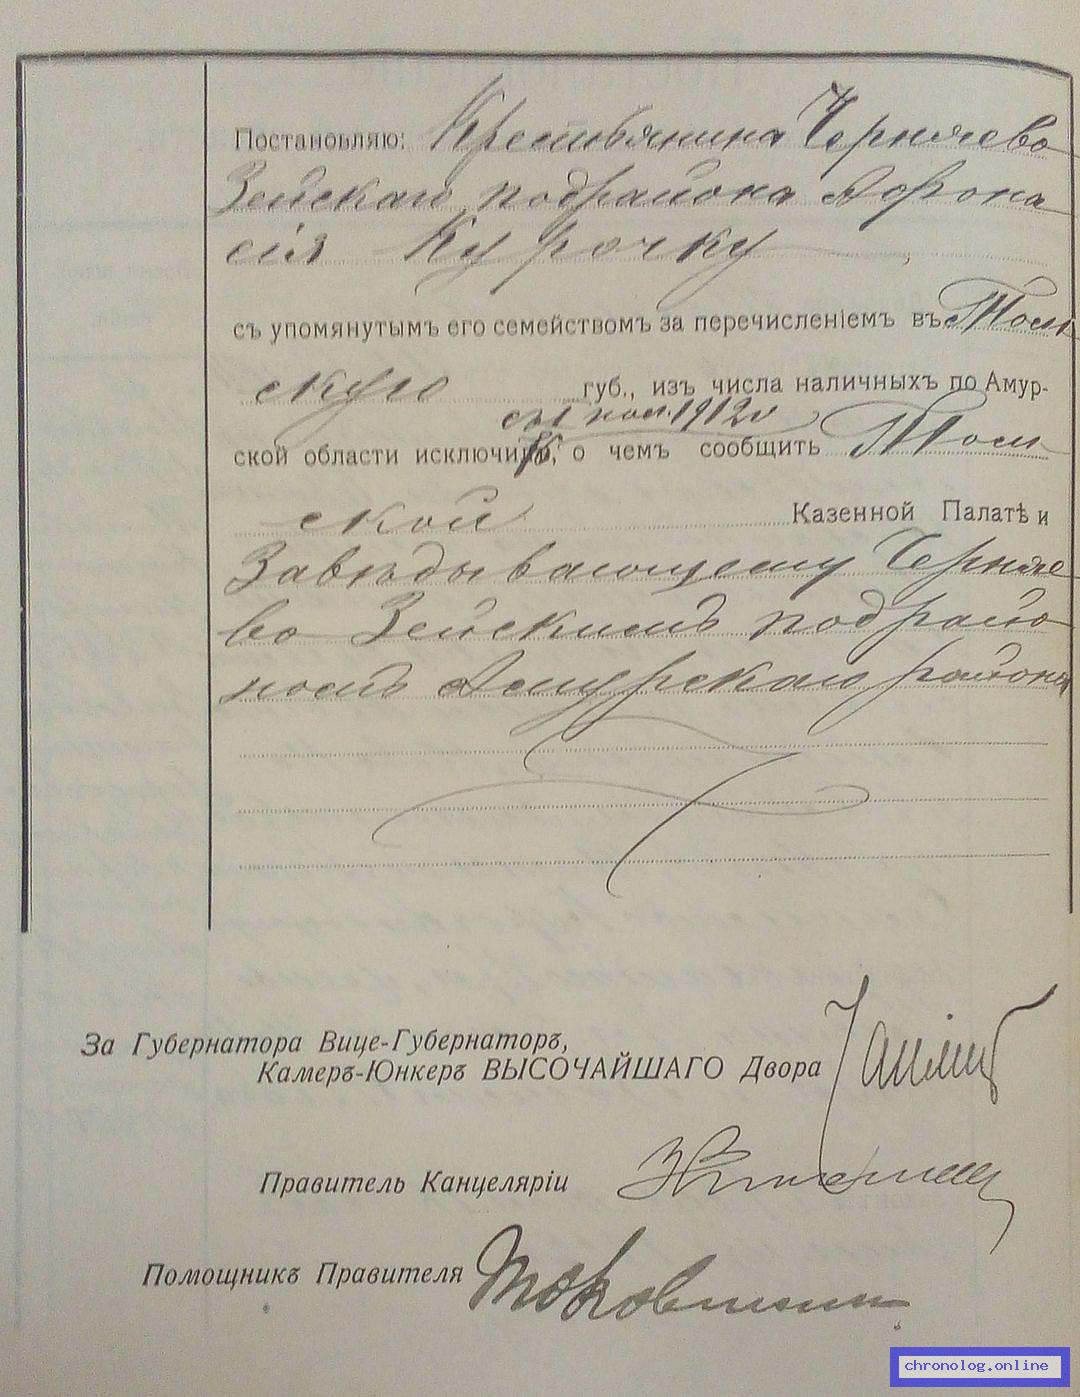 Постановляю: Крестьянина Черняево
Зейскаго подрайона Афона
сія Курочку
съ упомянутымъ его семействомъ за перечисленіемъ въ Том
скую губ., изъ числа наличныхъ по Амур-
съ 1 пол. 1912 г
ской области исключить, о чемъ сообщить Том
ской Казенной Палатѣ и
Завѣдывающему Черняе
во Зейскимъ подрайо
номъ Амурскаго района
За Губернатора Вице-Губернаторъ,
Камеръ-Юнкеръ ВЫСОЧАЙШАГО Двора
Правитель Канцеляріи
Помощникъ Правителя
chronolog.online